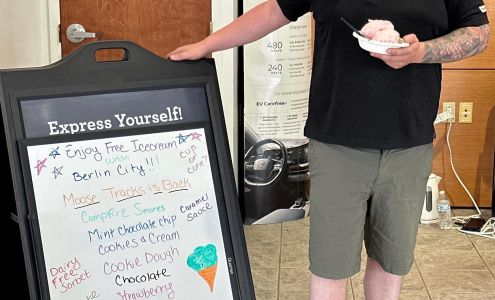 Express Yourself!
Enjoy Free Icecream
with
Berlin City!!!
cup
or
cone?
Moose Tracks is Back
Campfire Smores
Caramel
sauce
Mint chocolate chip
Cookies & Cream
Cookie Dough
Dairy
Free
Sorbet
Chocolate
Strawberry
480
VOLTS
240
VOLTS
EV Carefree